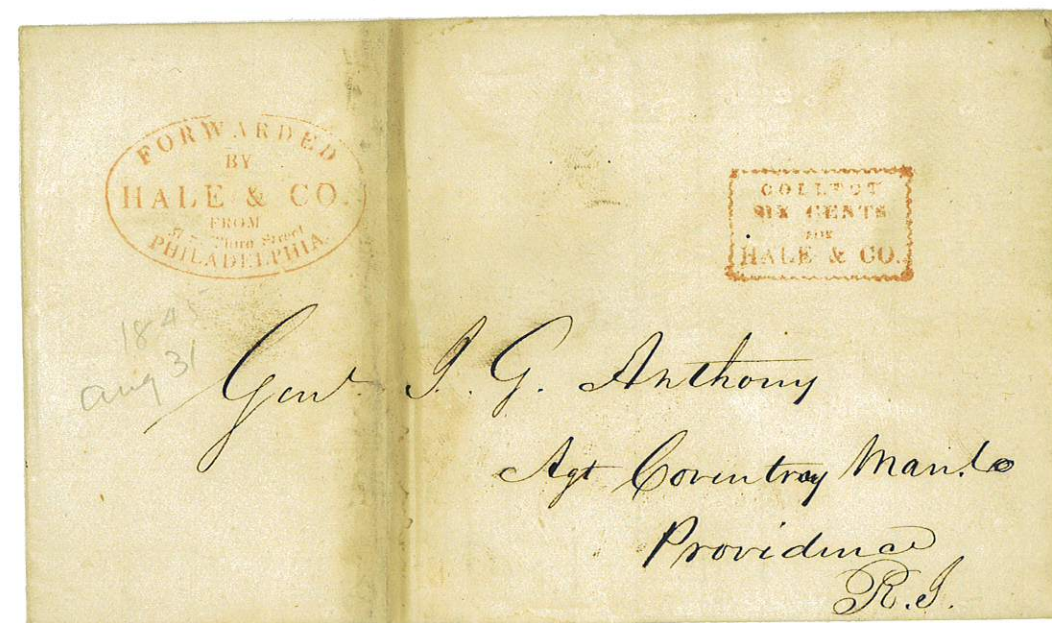 FORWARDED
BY
HALE & CO.
FROM
Third Street
PHILADELPHIA
COLLECT
SIX CENTS
FOR
HALE & CO.
184
aug 31
Genl. I. G. Anthony
Agt Coventry Man. Co
Providence
R.I.